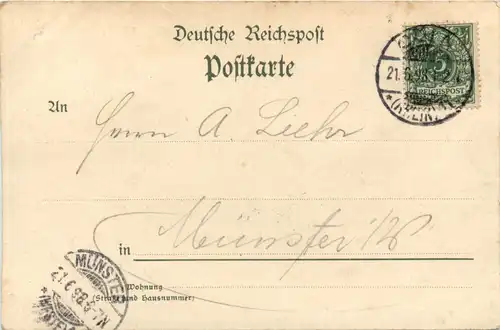 Deutsche Reichspost
Postkarte
21.6.98
REICHSPOST
(RHEIN)
An
Herrn A. Liehr
Münster i/W
in
MÜNSTER
21 6 98
Wohnung
(Straße und Hausnummer)